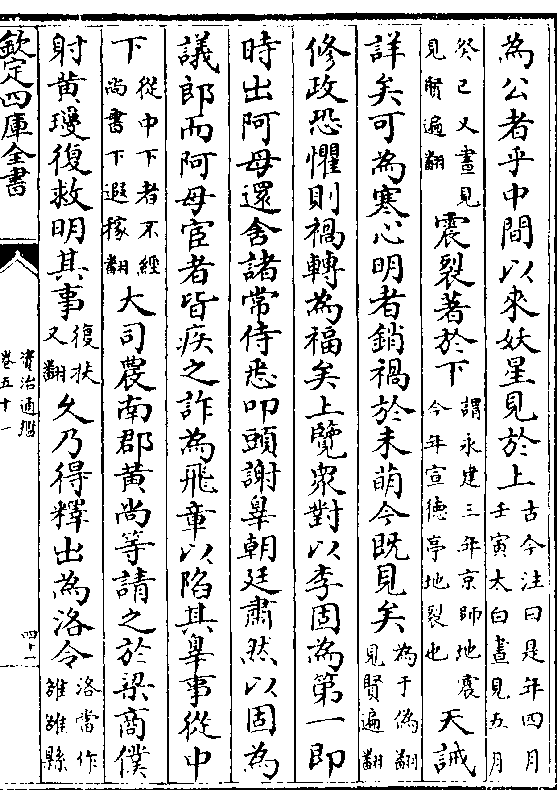 為公者乎中間以來妖星見於上古今注曰是年四月壬寅太白晝見五月
癸已又晝見見賢遍翻震裂著於下謂永建三年京師地震今年宣德亭地裂也天誡
詳矣可為寒心明者銷禍於未萌今既見矣為于偽翻見賢遍翻
修政恐懼則禍轉為福矣上覽衆對以李固為第一即
時出阿母還舍諸常侍悉叩頭謝辠朝廷肅然以固為
議郎而阿母宦者皆疾之詐為飛章以陷其辠事從中
下從中下者不經尚書下遐稼翻大司農南郡黄尚等請之於梁商僕
射黄瓊復救明其事復扶又翻久乃得釋出為洛令洛當作雒雒縣
欽定四庫全書
資治通鑑
卷五十一
四十二